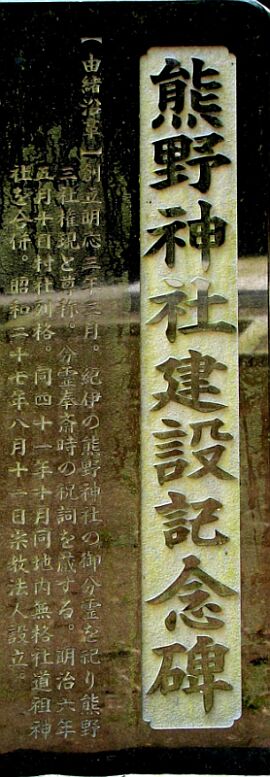 熊野神社建設記念碑
【由緒沿革】創立明応三年三月。紀伊の熊野神社の御分霊を祀り熊野
三社権現と尊称。分霊奉斎時の祝詞を蔵する。明治六年
五月十日村社列格。同四十一年十月同地内無格社道祖神
社を合併。昭和二十七年八月十一日宗教法人設立。